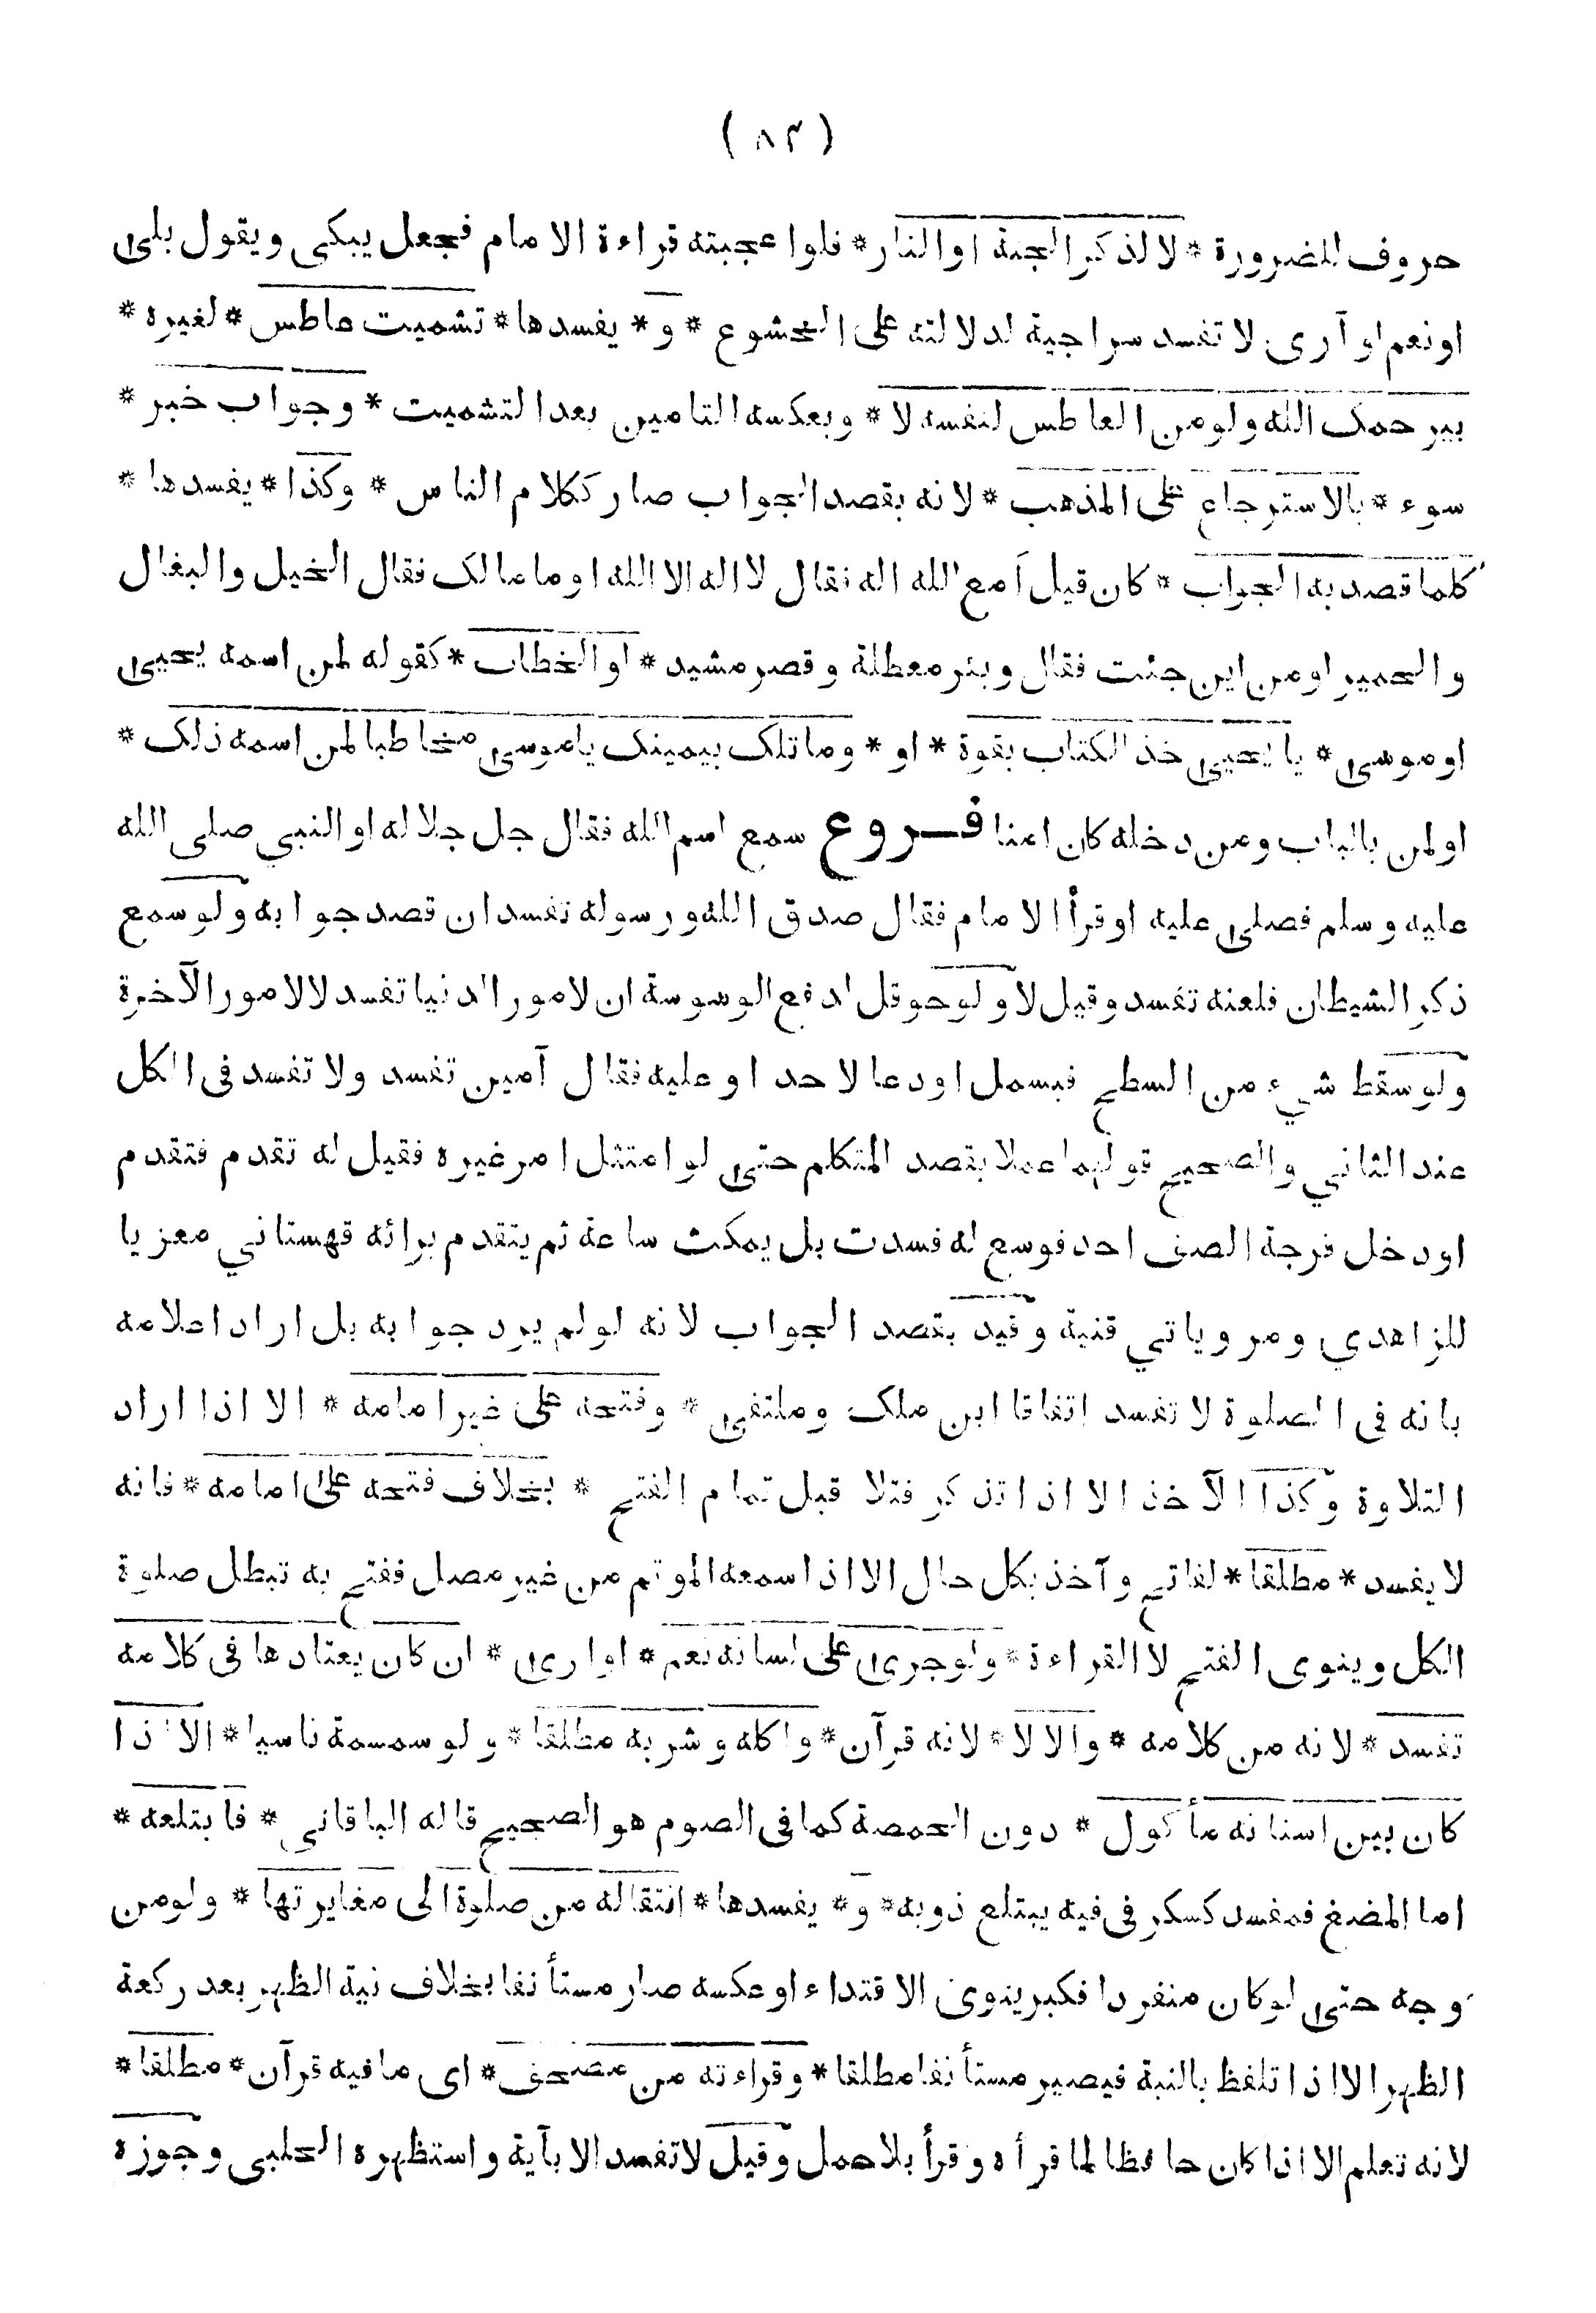 ( ٨٣ )
حروف للضرورة * لا لذكر الجنة او النار * فلو اعجبته قراءة الامام فجعل يبكى ويقول بلى
او نعم او آرى لا تفسد سراجية لدلالته على الخشوع * و * يفسدها * تشميت عاطس * لغيره *
بيرحمك الله ولو من العاطس لنفسه لا * وبعكسه التامين بعد التشميت * وجواب خبر *
سوء * بالاسترجاع على المذهب * لانه بقصد الجواب صار ككلام الناس * وكذا * يفسدها *
كلما قصد به الجواب * كان قيل أمع الله اله فقال لا اله الا الله او ما مالك فقال الخيل والبغال
والحمير او من اين جئت فقال وبئر معطلة وقصر مشيد * او الخطاب * كقوله لمن اسمه يحيى
او موسى * يا يحيى خذ الكتاب بقوة * او * وما تلك بيمينك يا موسى مخاطبا لمن اسمه ذلك *
او لمن بالباب ومن دخله كان امنا فـــروع سمع اسم الله فقال جل جلاله او النبي صلى الله
عليه وسلم فصلى عليه او قرأ الامام فقال صدق الله ورسوله تفسد ان قصد جوابه ولو سمع
ذكر الشيطان فلعنه تفسد وقيل لا ولو حوقل لدفع الوسوسة ان لامور الدنيا تفسد لا لامور الآخرة
ولو سقط شيء من السطح فبسمل او دعا لاحد او عليه فقال آمين تفسد ولا تفسد فى الكل
عند الثاني والصحيح قولهما عملا بقصد المتكلم حتى لو امتثل امر غيره فقيل له تقدم فتقدم
او دخل فرجة الصف احد فوسع له فسدت بل يمكث ساعة ثم يتقدم برائه قهستاني معزيا
للزاهدي ومر وياتي قنية وقيد بقصد الجواب لانه لو لم يرد جوابه بل اراد اعلامه
بانه فى الصلوة لا تفسد اتفاقا ابن ملك وملتقى * وفتحه على غير امامه * الا اذا اراد
التلاوة وكذا الآخذ الا اذا تذكر فتلا قبل تمام الفتح * بخلاف فتحه على امامه * فانه
لا يفسد * مطلقا * لفاتح وآخذ بكل حال الا اذا سمعه الموتم من غير مصل ففتح به تبطل صلوة
الكل وينوى الفتح لا القراءة * ولو جرى على لسانه نعم * او ارى * ان كان يعتادها فى كلامه
تفسد * لانه من كلامه * والا لا * لانه قرآن * واكله وشربه مطلقا * ولو سمسمة ناسيا * الا اذا
كان بين اسنانه مأكول * دون الحمصة كما فى الصوم هو الصحيح قاله الباقاني * فابتلعه *
اما المضغ فمفسد كسكر فى فيه يبتلع ذوبه * و * يفسدها * انتقاله من صلوة الى مغايرتها * ولو من
وجه حتى لو كان منفردا فكبر ينوى الاقتداء او عكسه صار مستأنفا بخلاف نية الظهر بعد ركعة
الظهر الا اذا تلفظ بالنية فيصير مستأنفا مطلقا * وقراءته من مصحف * اى ما فيه قرآن * مطلقا *
لانه تعلم الا اذا كان حافظا لما قرأه وقرأ بلا حمل وقيل لا تفسد الا بآية واستظهره الحلبى وجوزه